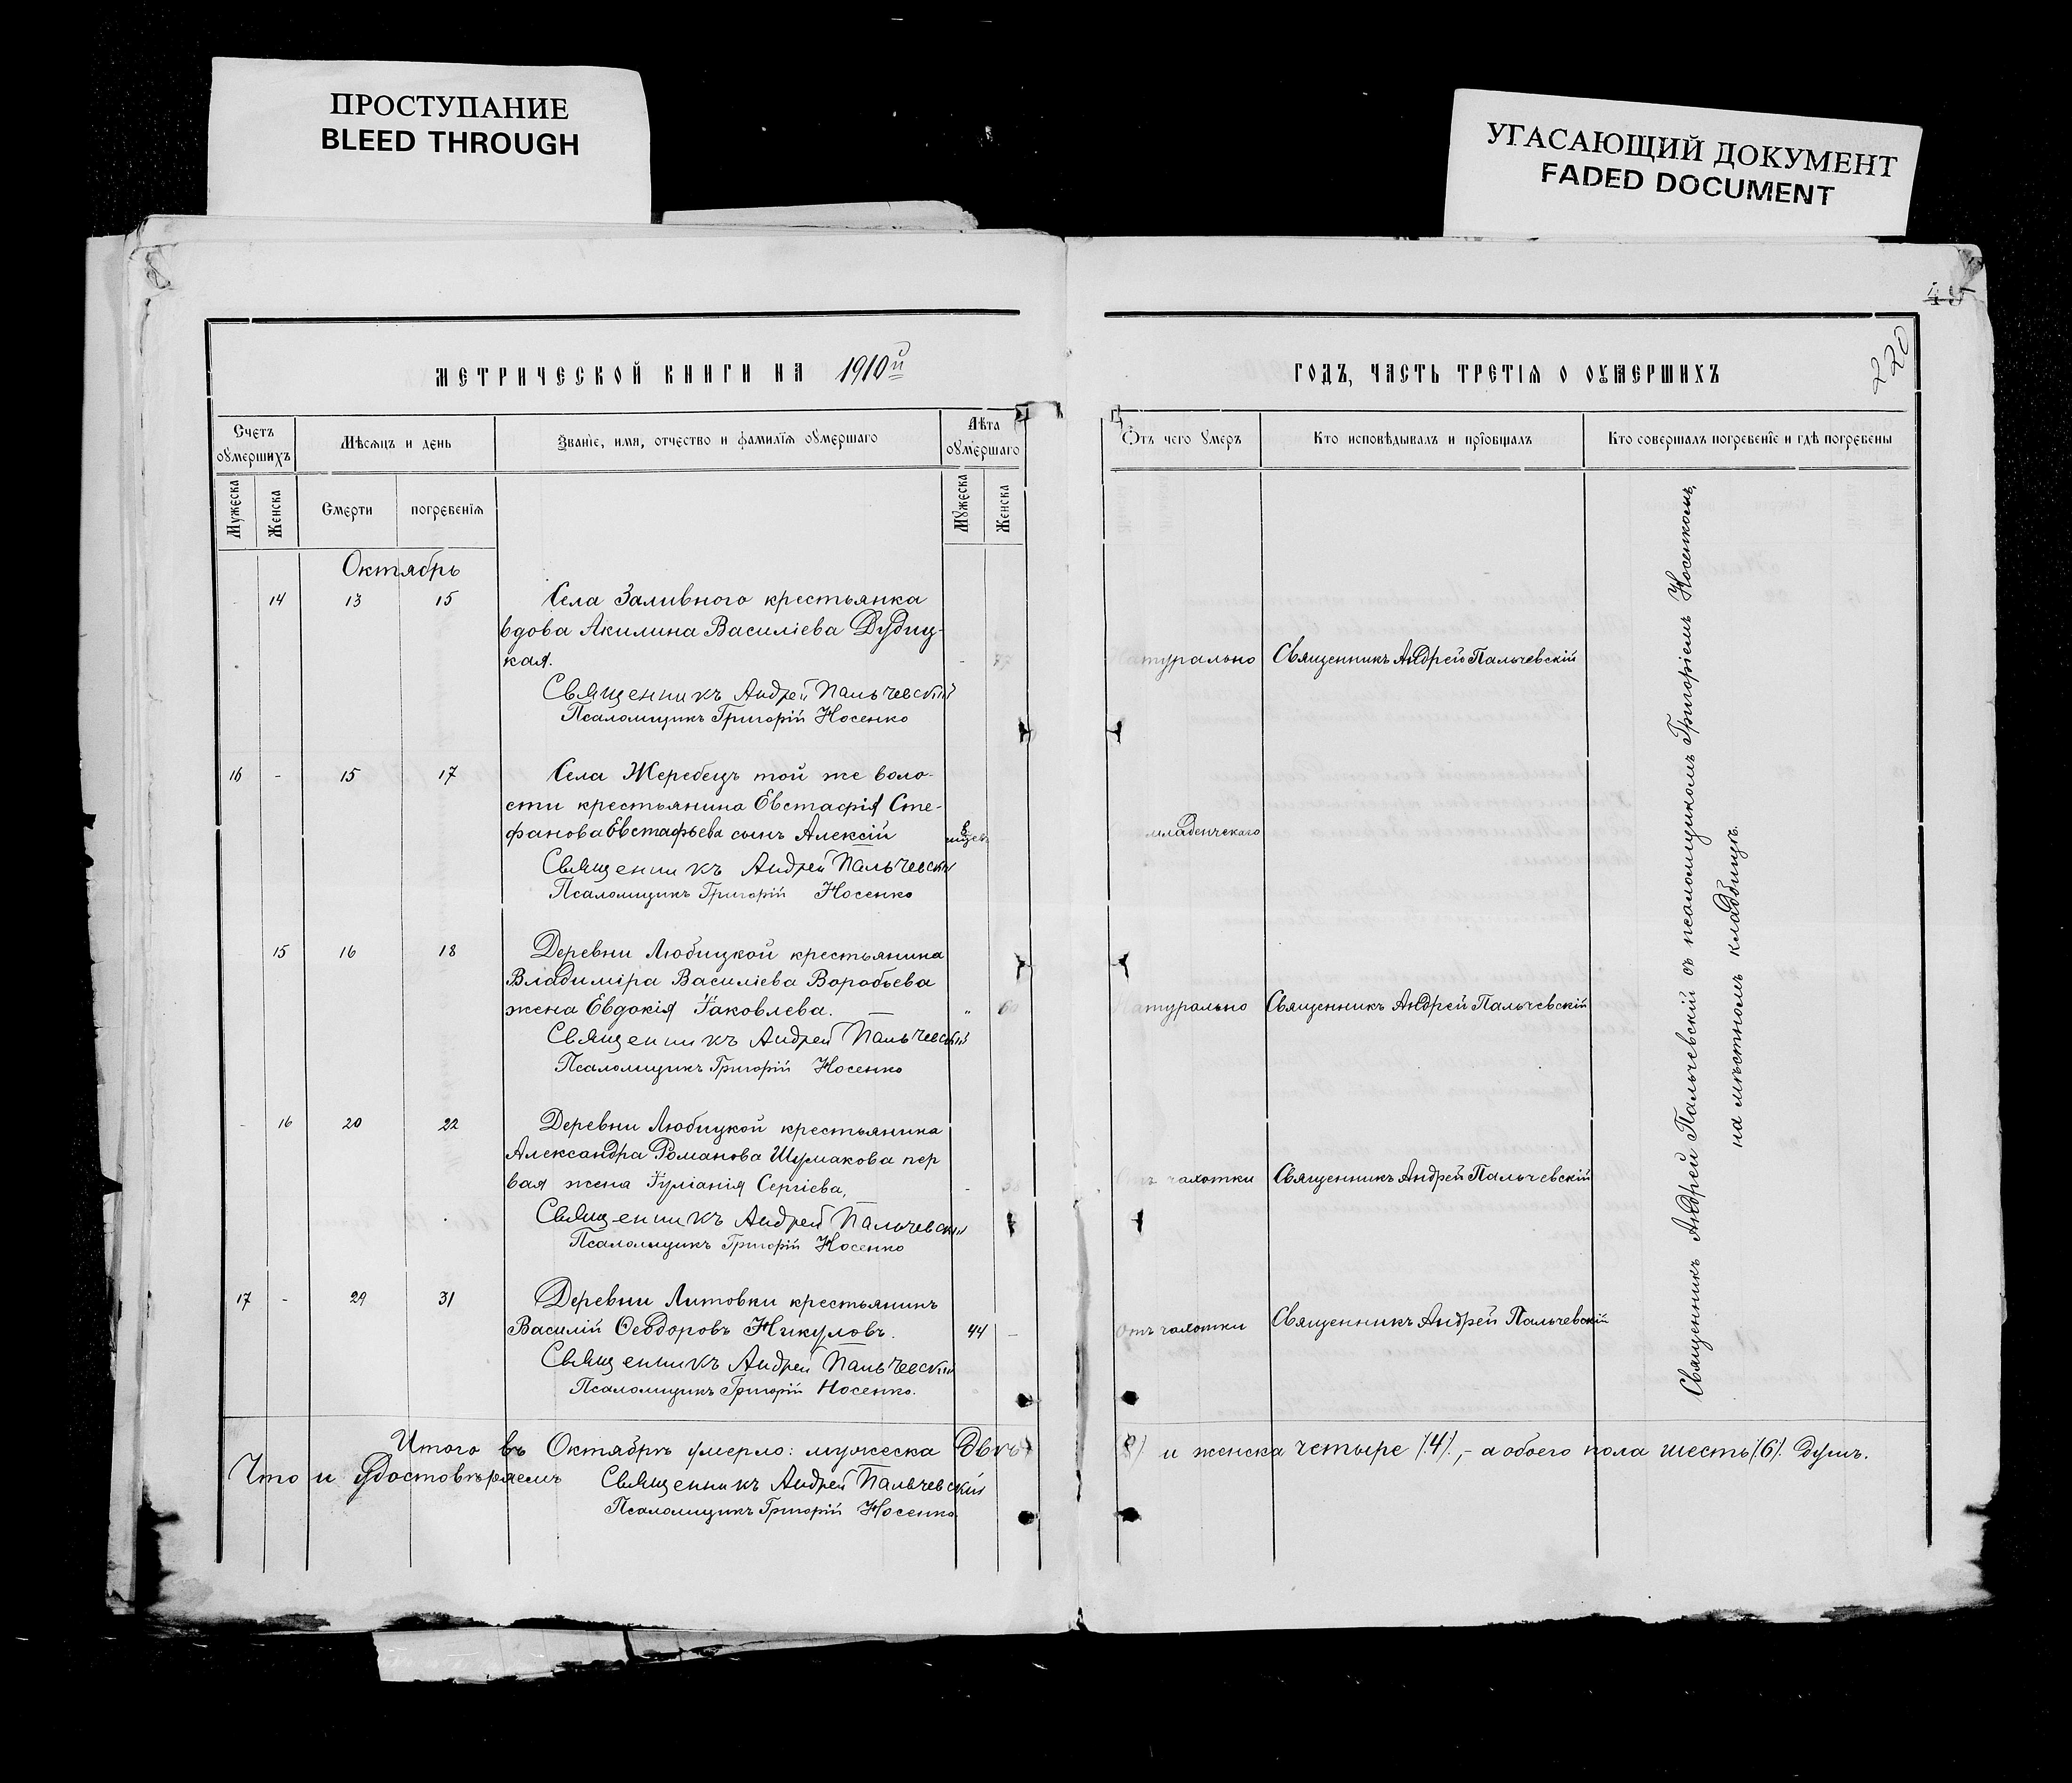 ПРОСТУПАНИЕ
BLEED THROUGH
УГАСАЮЩИЙ ДОКУМЕНТ
FADED DOCUMENT
45
220
МЕТРИЧЕСКОЙ КНИГИ НА 1910й
ГОДЪ, ЧАСТЬ ТРЕТІЯ О ОУМЕРШИХЪ
Счетъ оумершихъ
Мѣсяцъ и день
Званіе, имя, отчество и фамилія оумершаго
Лѣта оумершаго
Отъ чего умеръ
Кто исповѣдывалъ и пріобщалъ
Кто совершалъ погребеніе и гдѣ погребены
Мужеска
Женска
Смерти
погребенія
Мужеска
Женска
Октябрь
14 13 15 Села Заливного крестьянка
вдова Акилина Василіева Дубиц-
кая. - Натурально Священникъ Андрей Пальчевскій
Священникъ Андрей Пальчевскій
Псаломщикъ Григорій Носенко
16 - 15 17 Села Жеребецъ той же воло-
сти крестьянина Евстафія Сте-
фанова Евстафьева сынъ Алексій младенческаго
Священникъ Андрей Пальчевскій
Псаломщикъ Григорій Носенко
15 16 18 Деревни Любицкой крестьянина
Владиміра Василіева Воробьева
жена Евдокія Іаковлева. " 60 Натурально Священникъ Андрей Пальчевскій
Священникъ Андрей Пальчевскій
Псаломщикъ Григорій Носенко
- 16 20 22 Деревни Любицкой крестьянина
Александра Романова Шумакова пер
вая жена Іуліанія Сергіева, - Отъ чахотки Священникъ Андрей Пальчевскій
Священникъ Андрей Пальчевскій
Псаломщикъ Григорій Носенко
17 - 29 31 Деревни Литовки крестьянинъ
Василій Ѳеодоровъ Никуловъ. 44 - Отъ чахотки Священникъ Андрей Пальчевскій
Священникъ Андрей Пальчевскій
Псаломщикъ Григорій Носенко.
Священникъ Андрей Пальчевскій съ псаломщикомъ Григоріемъ Носенкомъ,
на мѣстномъ кладбищѣ.
Итого въ Октябрѣ умерло: мужеска двѣ и женска четыре /4/, - а обоего пола шесть /6/. душъ.
Что и удостовѣряемъ Священникъ Андрей Пальчевскій
Псаломщикъ Григорій Носенко.